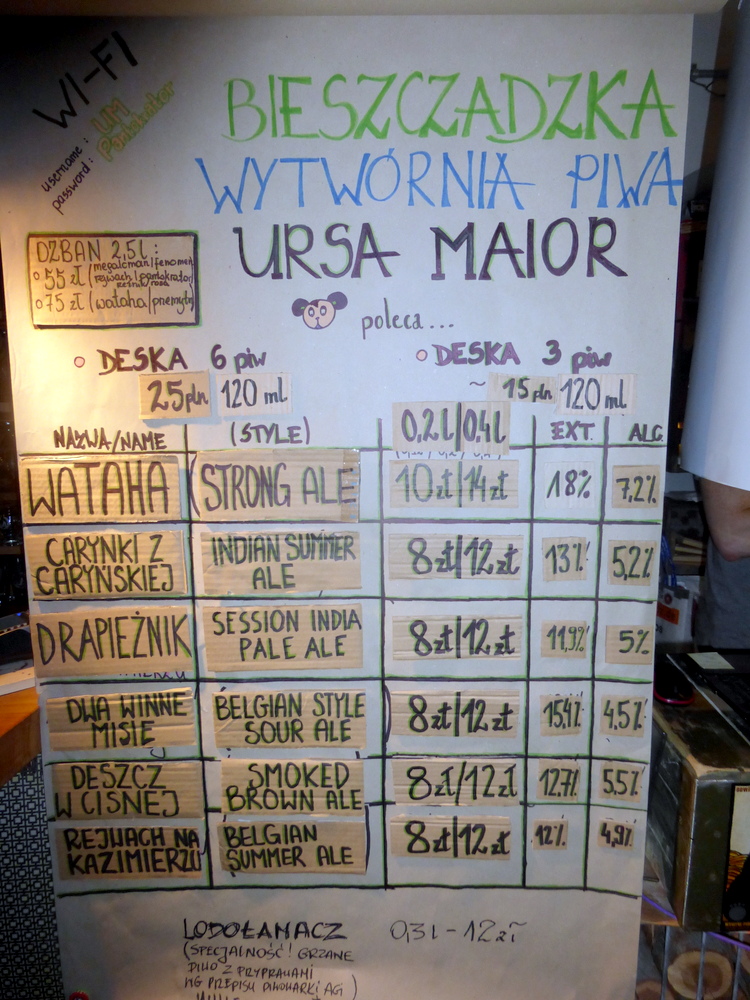 WI-FI
username: UM
password:
BIESZCZADZKA
WYTWÓRNIA PIWA
URSA MAIOR
DZBAN 2,5l:
55 zł (megaloman/fenomen
75 zł (wataha/
poleca...
DESKA 6 piw
25pln 120 ml
DESKA 3 piw
~ 15 pln 120 ml
NAZWA/NAME (STYLE) 0,2l|0,4l EXT. ALC.
WATAHA (STRONG ALE 10zł|14zł 18% 7,2%
CARYNKI Z CARYŃSKIEJ INDIAN SUMMER ALE 8zł|12zł 13% 5,2%
DRAPIEŻNIK SESSION INDIA PALE ALE 8zł|12zł 11,9% 5%
DWA WINNE MISIE BELGIAN STYLE SOUR ALE 8zł|12zł 15,4% 4,5%
DESZCZ W CISNEJ SMOKED BROWN ALE 8zł/12zł 12,7% 5,5%
REJWACH NA KAZIMIERZU BELGIAN SUMMER ALE 8zł|12zł 12% 4,9%
LODOŁAMACZ 0,3l - 12zł
(SPECJALNOŚĆ! GRZANE
PIWO Z PRZYPRAWAMI
WG PRZEPISU PIWOWARKI AGI)